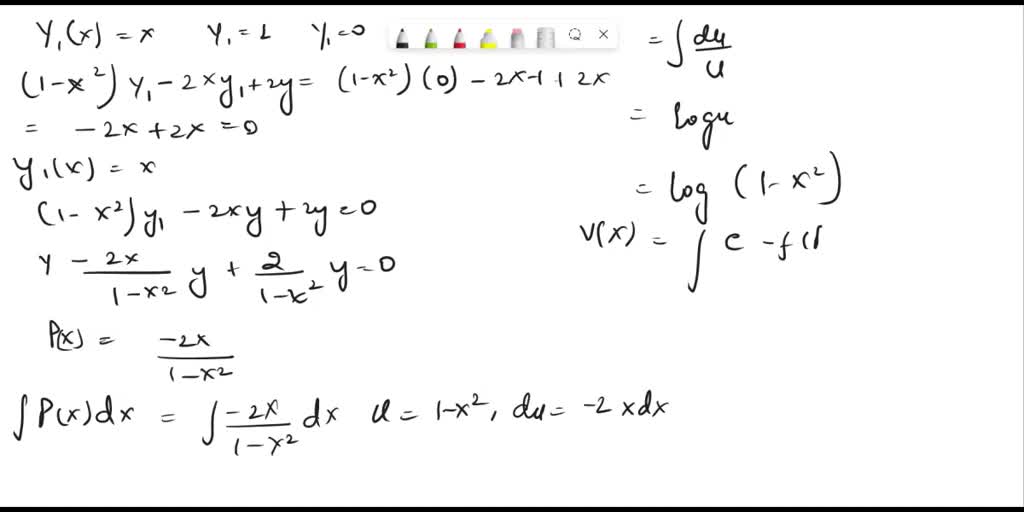 Y₁(x) = x Y₁ = 1 Y₁ = 0
(1-x²) Y₁ - 2xy₁ + 2y = (1-x²) (0) - 2x·1 + 2x
= -2x + 2x = 0
y₁(x) = x
(1-x²)y₁ - 2xy + 2y = 0
Y - 2x/1-x² y + 2/1-x² y = 0
P(x) = -2x/1-x²
∫P(x)dx = ∫-2x/1-x² dx u = 1-x², du = -2xdx
= ∫du/u
= logu
= log (1-x²)
V(x) = ∫ e -f